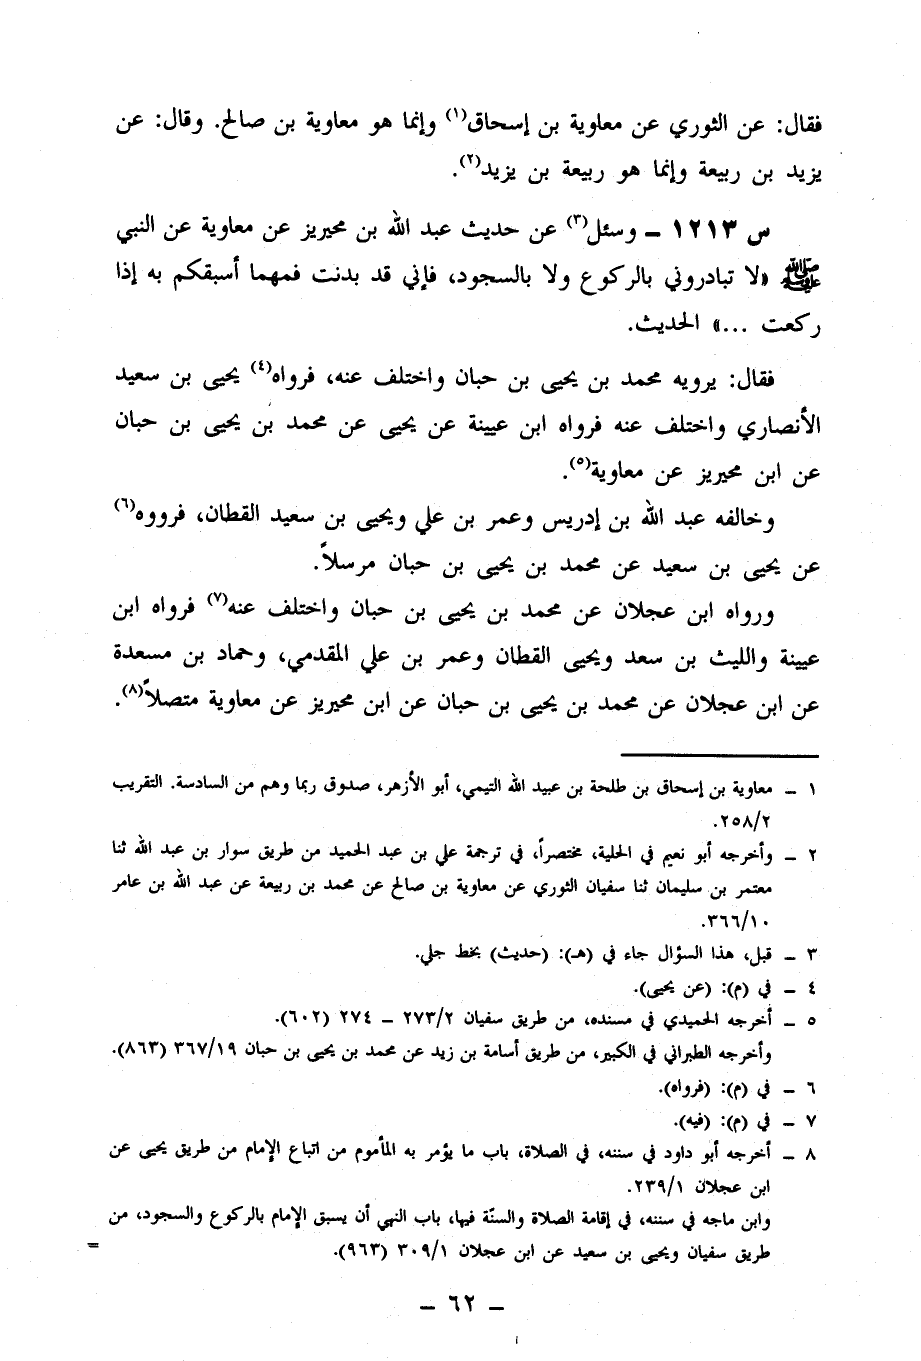 فقال: عن الثوري عن معاوية بن إسحاق(١) وإنما هو معاوية بن صالح. وقال: عن
يزيد بن ربيعة وإنما هو ربيعة بن يزيد(٢).
س ١٢١٣ ـ وسئل(٣) عن حديث عبد الله بن محيريز عن معاوية عن النبي
ﷺ «لا تبادروني بالركوع ولا بالسجود، فإني قد بدنت فمهما أسبقكم به إذا
ركعت ...» الحديث.
فقال: يرويه محمد بن يحيى بن حبان واختلف عنه، فرواه(٤) يحيى بن سعيد
الأنصاري واختلف عنه فرواه ابن عيينة عن يحيى عن محمد بن يحيى بن حبان
عن ابن محيريز عن معاوية(٥).
وخالفه عبد الله بن إدريس وعمر بن علي ويحيى بن سعيد القطان، فرووه(٦)
عن يحيى بن سعيد عن محمد بن يحيى بن حبان مرسلاً.
ورواه ابن عجلان عن محمد بن يحيى بن حبان واختلف عنه(٧) فرواه ابن
عيينة والليث بن سعد ويحيى القطان وعمر بن علي المقدمي، وحماد بن مسعدة
عن ابن عجلان عن محمد بن يحيى بن حبان عن ابن محيريز عن معاوية متصلاً(٨).
١ ـ معاوية بن إسحاق بن طلحة بن عبيد الله التيمي، أبو الأزهر، صدوق ربما وهم من السادسة. التقريب
٢٥٨/٢.
٢ ـ وأخرجه أبو نعيم في الحلية، مختصراً، في ترجمة علي بن عبد الحميد من طريق سوار بن عبد الله ثنا
معتمر بن سليمان ثنا سفيان الثوري عن معاوية بن صالح عن محمد بن ربيعة عن عبد الله بن عامر
٣٦٦/١٠.
٣ ـ قبل، هذا السؤال جاء في (هـ): (حديث) بخط جلي.
٤ ـ في (م): (عن يحيى).
٥ ـ أخرجه الحميدي في مسنده، من طريق سفيان ٢٧٣/٢ ـ ٢٧٤ (٦٠٢).
وأخرجه الطبراني في الكبير، من طريق أسامة بن زيد عن محمد بن يحيى بن حبان ٣٦٧/١٩ (٨٦٣).
٦ ـ في (م): (فرواه).
٧ ـ في (م): (فيه).
٨ ـ أخرجه أبو داود في سننه، في الصلاة، باب ما يؤمر به المأموم من اتباع الإمام من طريق يحيى عن
ابن عجلان ٢٣٩/١.
وابن ماجه في سننه، في إقامة الصلاة والسنّة فيها، باب النهي أن يسبق الإمام بالركوع والسجود، من
طريق سفيان ويحيى بن سعيد عن ابن عجلان ٣٠٩/١ (٩٦٣). =
ـ ٦٢ ـ